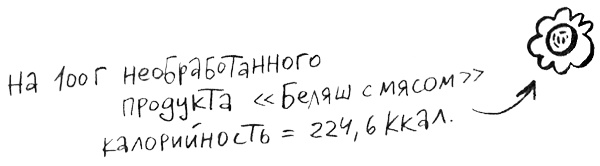 на 100г необработанного
продукта «Беляш с мясом»
калорийность = 224,6 ккал.